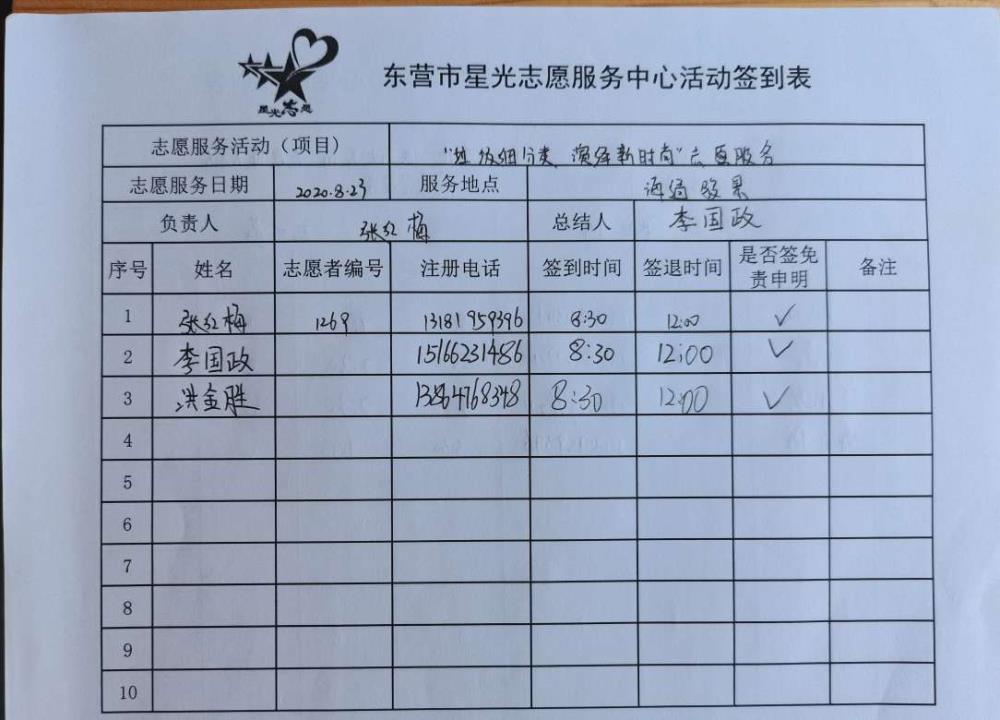 星光志愿
东营市星光志愿服务中心活动签到表
志愿服务活动（项目） "垃圾细分类 演绎新时尚"志愿服务
志愿服务日期 2020.8.23 服务地点 海通
负责人 张红梅 总结人 李国政
序号 姓名 志愿者编号 注册电话 签到时间 签退时间 是否签免责申明 备注
1 张红梅 1269 13181959396 8:30 12:00 ✓
2 李国政 15166231486 8:30 12:00 ✓
3 洪金胜 13864768348 8:30 12:00 ✓
4
5
6
7
8
9
10